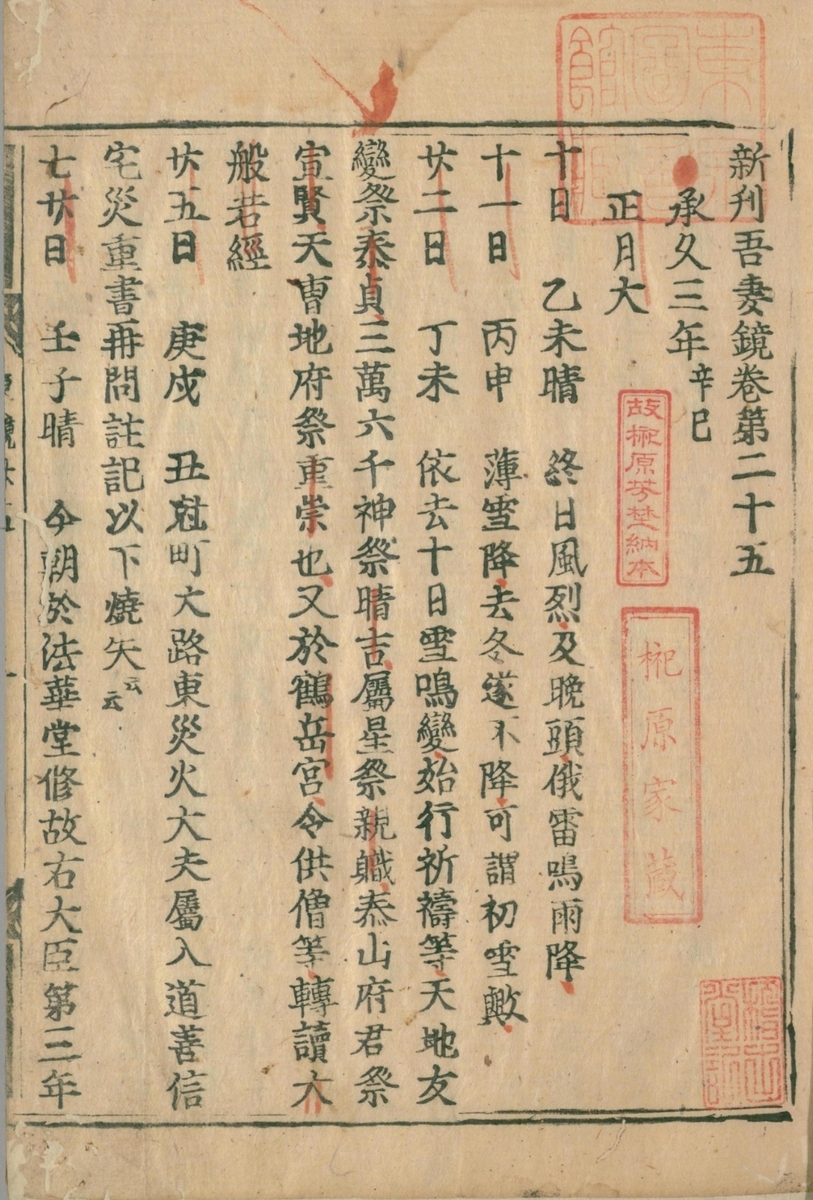 新刊吾妻鏡卷第二十五
承久三年辛巳
正月大
十日　乙未晴　終日風烈及晩頭俄雷鳴雨降
十一日　丙申　薄雪降去冬遂不降可謂初雪歟
廿二日　丁未　依去十日雪鳴變始行祈禱等天地友
變祭泰貞三萬六千神祭晴吉屬星祭親職泰山府君祭
宣賢天曹地府祭重宗也又於鶴岳宮令供僧等轉讀大
般若經
廿五日　庚戌　丑尅町大路東災火大夫屬入道善信
宅災重書再問註記以下燒失云云
七廿日　壬子晴　今朝於法華堂修故右大臣第三年
故榊原芳埜納本
榊原家藏